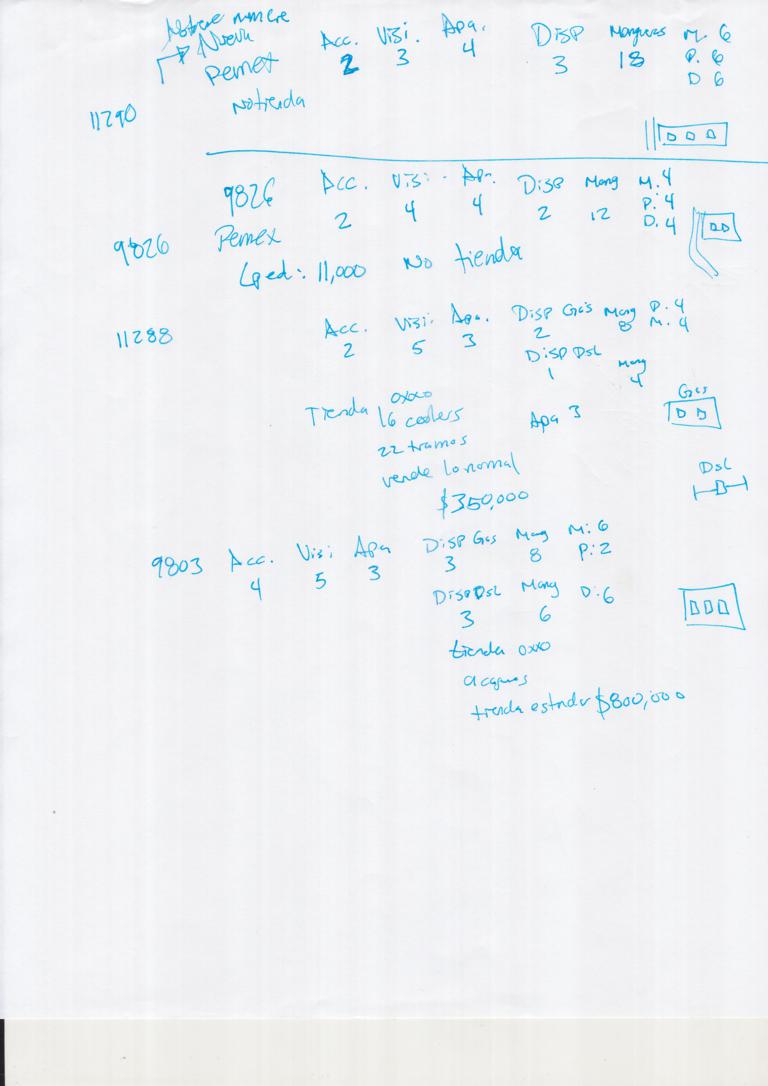 No tiene numero
Nueva
Pemex Acc. Visi. Apa. Disp Mangueras M. 6
2 3 4 3 18 P. 6
D 6
11290 No tienda
9826 Acc. Visi. Apa. Disp Mang M. 4
2 4 4 2 12 P. 4
D. 4
9826 Pemex
11,000 No tienda
11288 Acc. Visi. Apa. Disp Gas Mang P. 4
2 5 3 2 8 M. 4
Disp Dsl Mang
1 4
Tienda oxxo
16 coolers Apa 3
22 tramos
vende lo normal
$350,000
Gas
Dsl
9803 Acc. Visi Apa Disp Gas Mang M: 6
4 5 3 3 8 P: 2
Disp Dsl Mang D: 6
3 6
tienda oxxo
tienda estandar $800,000